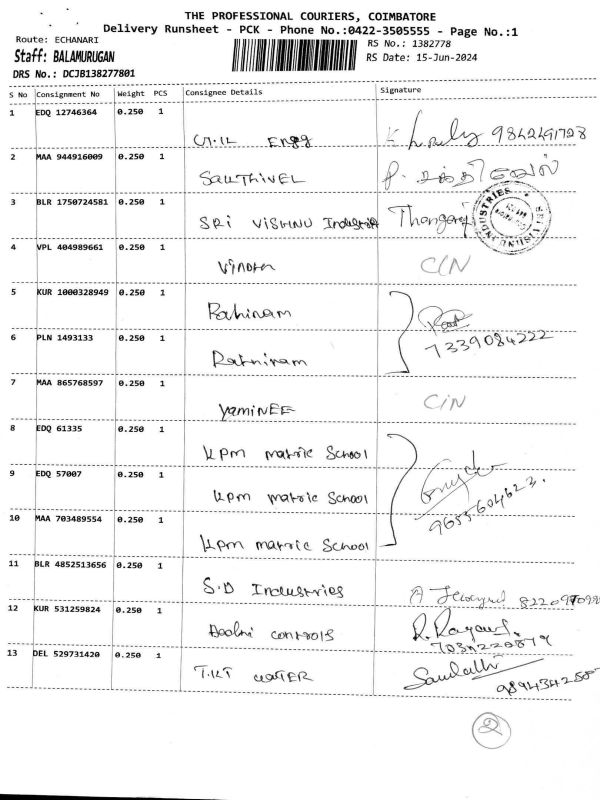 THE PROFESSIONAL COURIERS, COIMBATORE
Delivery Runsheet - PCK - Phone No.:0422-3505555 - Page No.:1
Route: ECHANARI
RS No.: 1382778
Staff: BALAMURUGAN
RS Date: 15-Jun-2024
DRS No.: DCJB138277801
S No Consignment No Weight PCS Consignee Details Signature
1 EDQ 12746364 0.250 1
Engg 9842491728
2 MAA 944916009 0.250 1
SAUTHIVEL P. சக்திவேல்
3 BLR 1750724581 0.250 1
SRI VISHNU Industries Thangaraj
SRI VISHNU INDUSTRIES
4 VPL 404989661 0.250 1
CIN
5 KUR 1000328949 0.250 1
Rathinam
6 PLN 1493133 0.250 1
7339084222
Rathinam
7 MAA 865768597 0.250 1
YamiNEE CIN
8 EDQ 61335 0.250 1
KPM matric School
9 EDQ 57007 0.250 1
KPM matric School
9655604623.
10 MAA 703489554 0.250 1
KPM matric School
11 BLR 4852513656 0.250 1
S.D Industries
12 KUR 531259824 0.250 1
controls
13 DEL 529731420 0.250 1
WATER
2